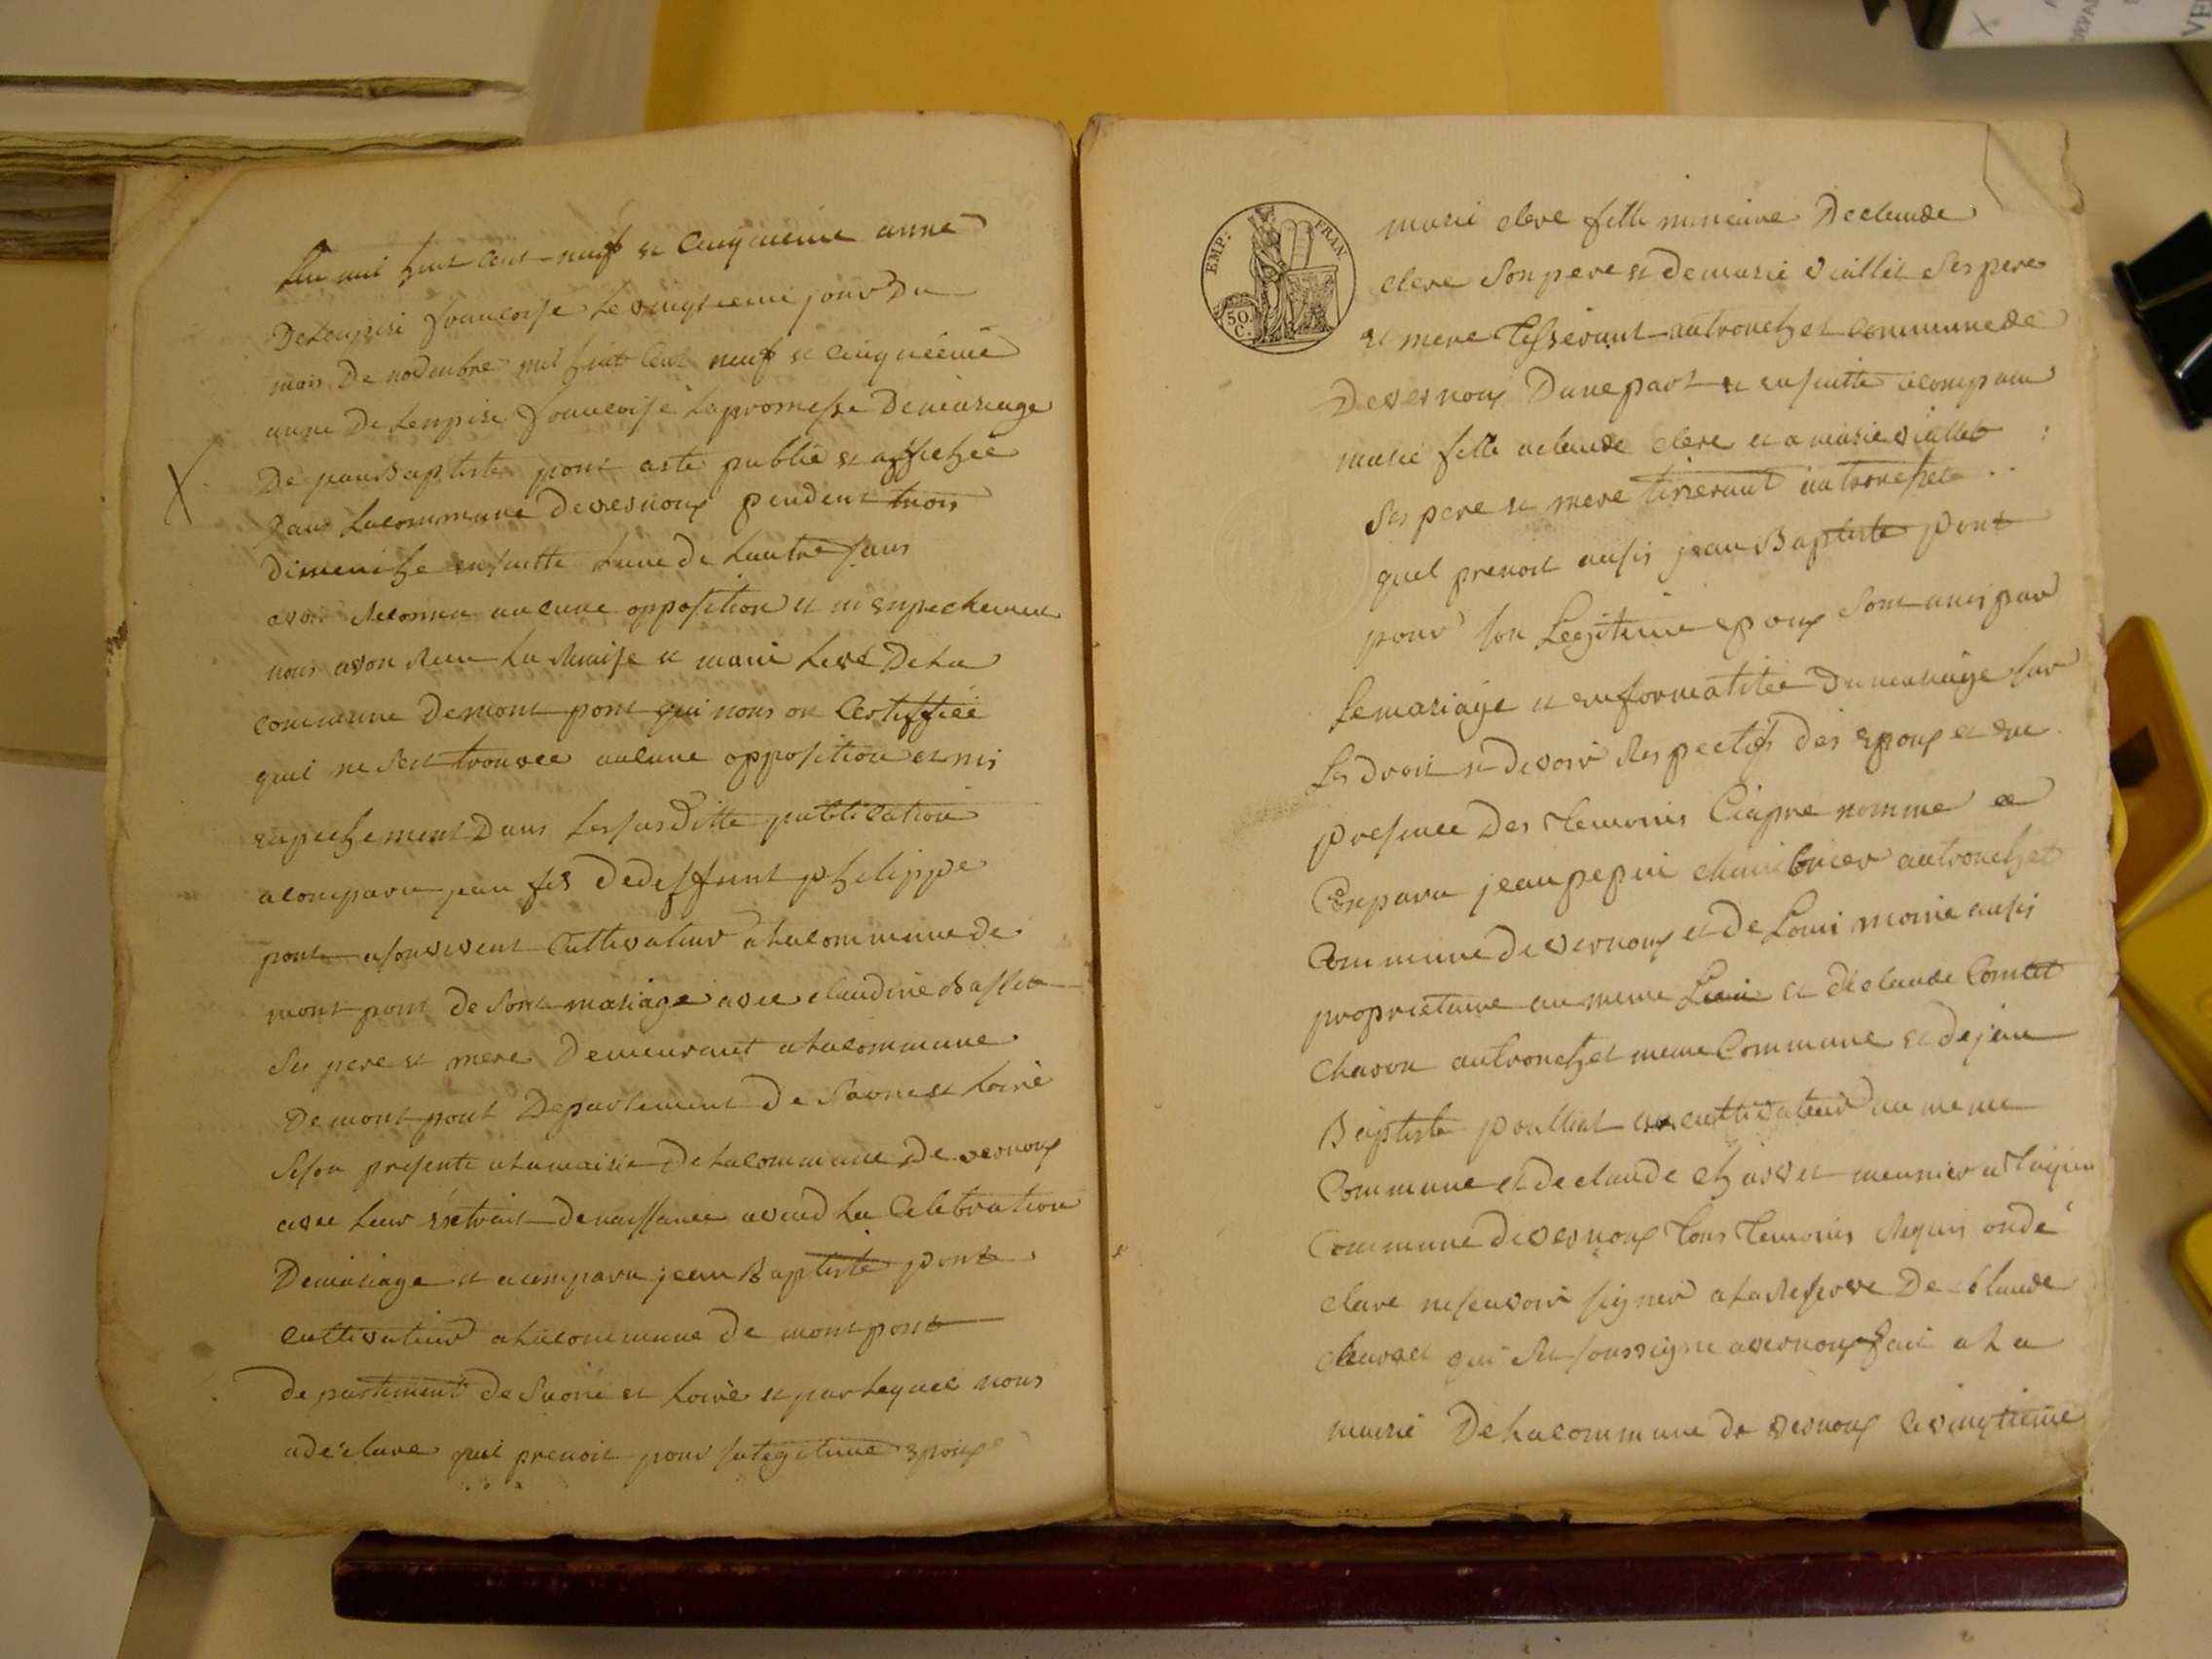 Lan mil huit cent neuf et cinquieme anné
De Lenpire francoise Le vingtieme jour Du
mois De novembre mil huit Cent neuf et cinquiéme
anne De Lenpire francoise Lapromesse De mariage
De jean Baptiste pont aste publié et affichée
Dans Lacommune Devernoux pendent trois
Dimenche ensuitte Lune de Lautre sans
avoir Reconnu aucune opposition et ni enpechement
nous avon Recu La Remise
commune De mont pont qui nous on Certiffiée
quil ne Set trouvee aucune opposition et ni
enpechement Dans Les susditte publication
a Conparu jean fis De deffunt philippe
pont Cultivateur a Lacommune de
mont pont de Sont mariage avec claudine
Ses pere et mere Demeurant a Lacommune
De mont pont Departement De Saone et Loire
Seson presente a Lamairie De Lacommune De vernoux
avec Leur extrait De naissance La Celebration
De mariage et a conparu jean Baptiste pont
Cultivateur a Lacommune de mont pont
de partement de Saone et Loire et par Lequel nous
a déclare quil prenoit pour sa Legitime epouse
EMP. FRAN.
50
C.
marie clere fille mineure De claude
clere Son pere et De marie viallet Ses pere
et mere Tisserant au tronchet commune de
De vernoux Dune part et ensuitte a conparu
marie fille a claude clere et a marie viallet
Ses pere et mere tisserant au tronchet
quel prenoit ausis jean Baptiste pont
pour Son Legitime epoux Sont unis par
Le mariage et enformatitée Du mariage sur
Les Droit et Devoir Respectifs Des epoux et en
presence Des temoins Ciapre nomme
Conparu jean pepin au tronchet
Commune De vernoux et De Loui morie ausis
proprietaire au meme Lieu et De claude Comtet
charon au tronchet meme Commune et De jean
Baptiste poulliat cultivateur au meme
Commune et De claude charvet meunier a
Commune De vernoux tous temoins Requis on dé
clare ne savoir signer a La Reserve De Claude
charvet qui Set soussigne a vernoux fait a La
mairie De Lacommune de vernoux Le vingtieme